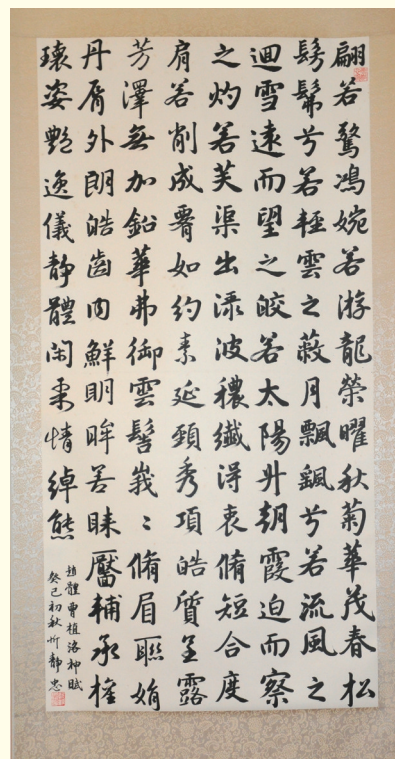 翩若驚鴻婉若游龍榮曜秋菊華茂春松
髣髴兮若輕雲之蔽月飄颻兮若流風之
迴雪遠而望之皎若太陽升朝霞迫而察
之灼若芙渠出淥波穠纖得衷脩短合度
肩若削成腰如約素延頸秀項皓質呈露
芳澤無加鉛華弗御雲髻峩〻脩眉聯娟
丹脣外朗皓齒内鮮明眸善睞靨輔承權
瓌姿艷逸儀靜體閑柔情綽態
趙體曹植洛神賦
癸巳初秋忻靜忠